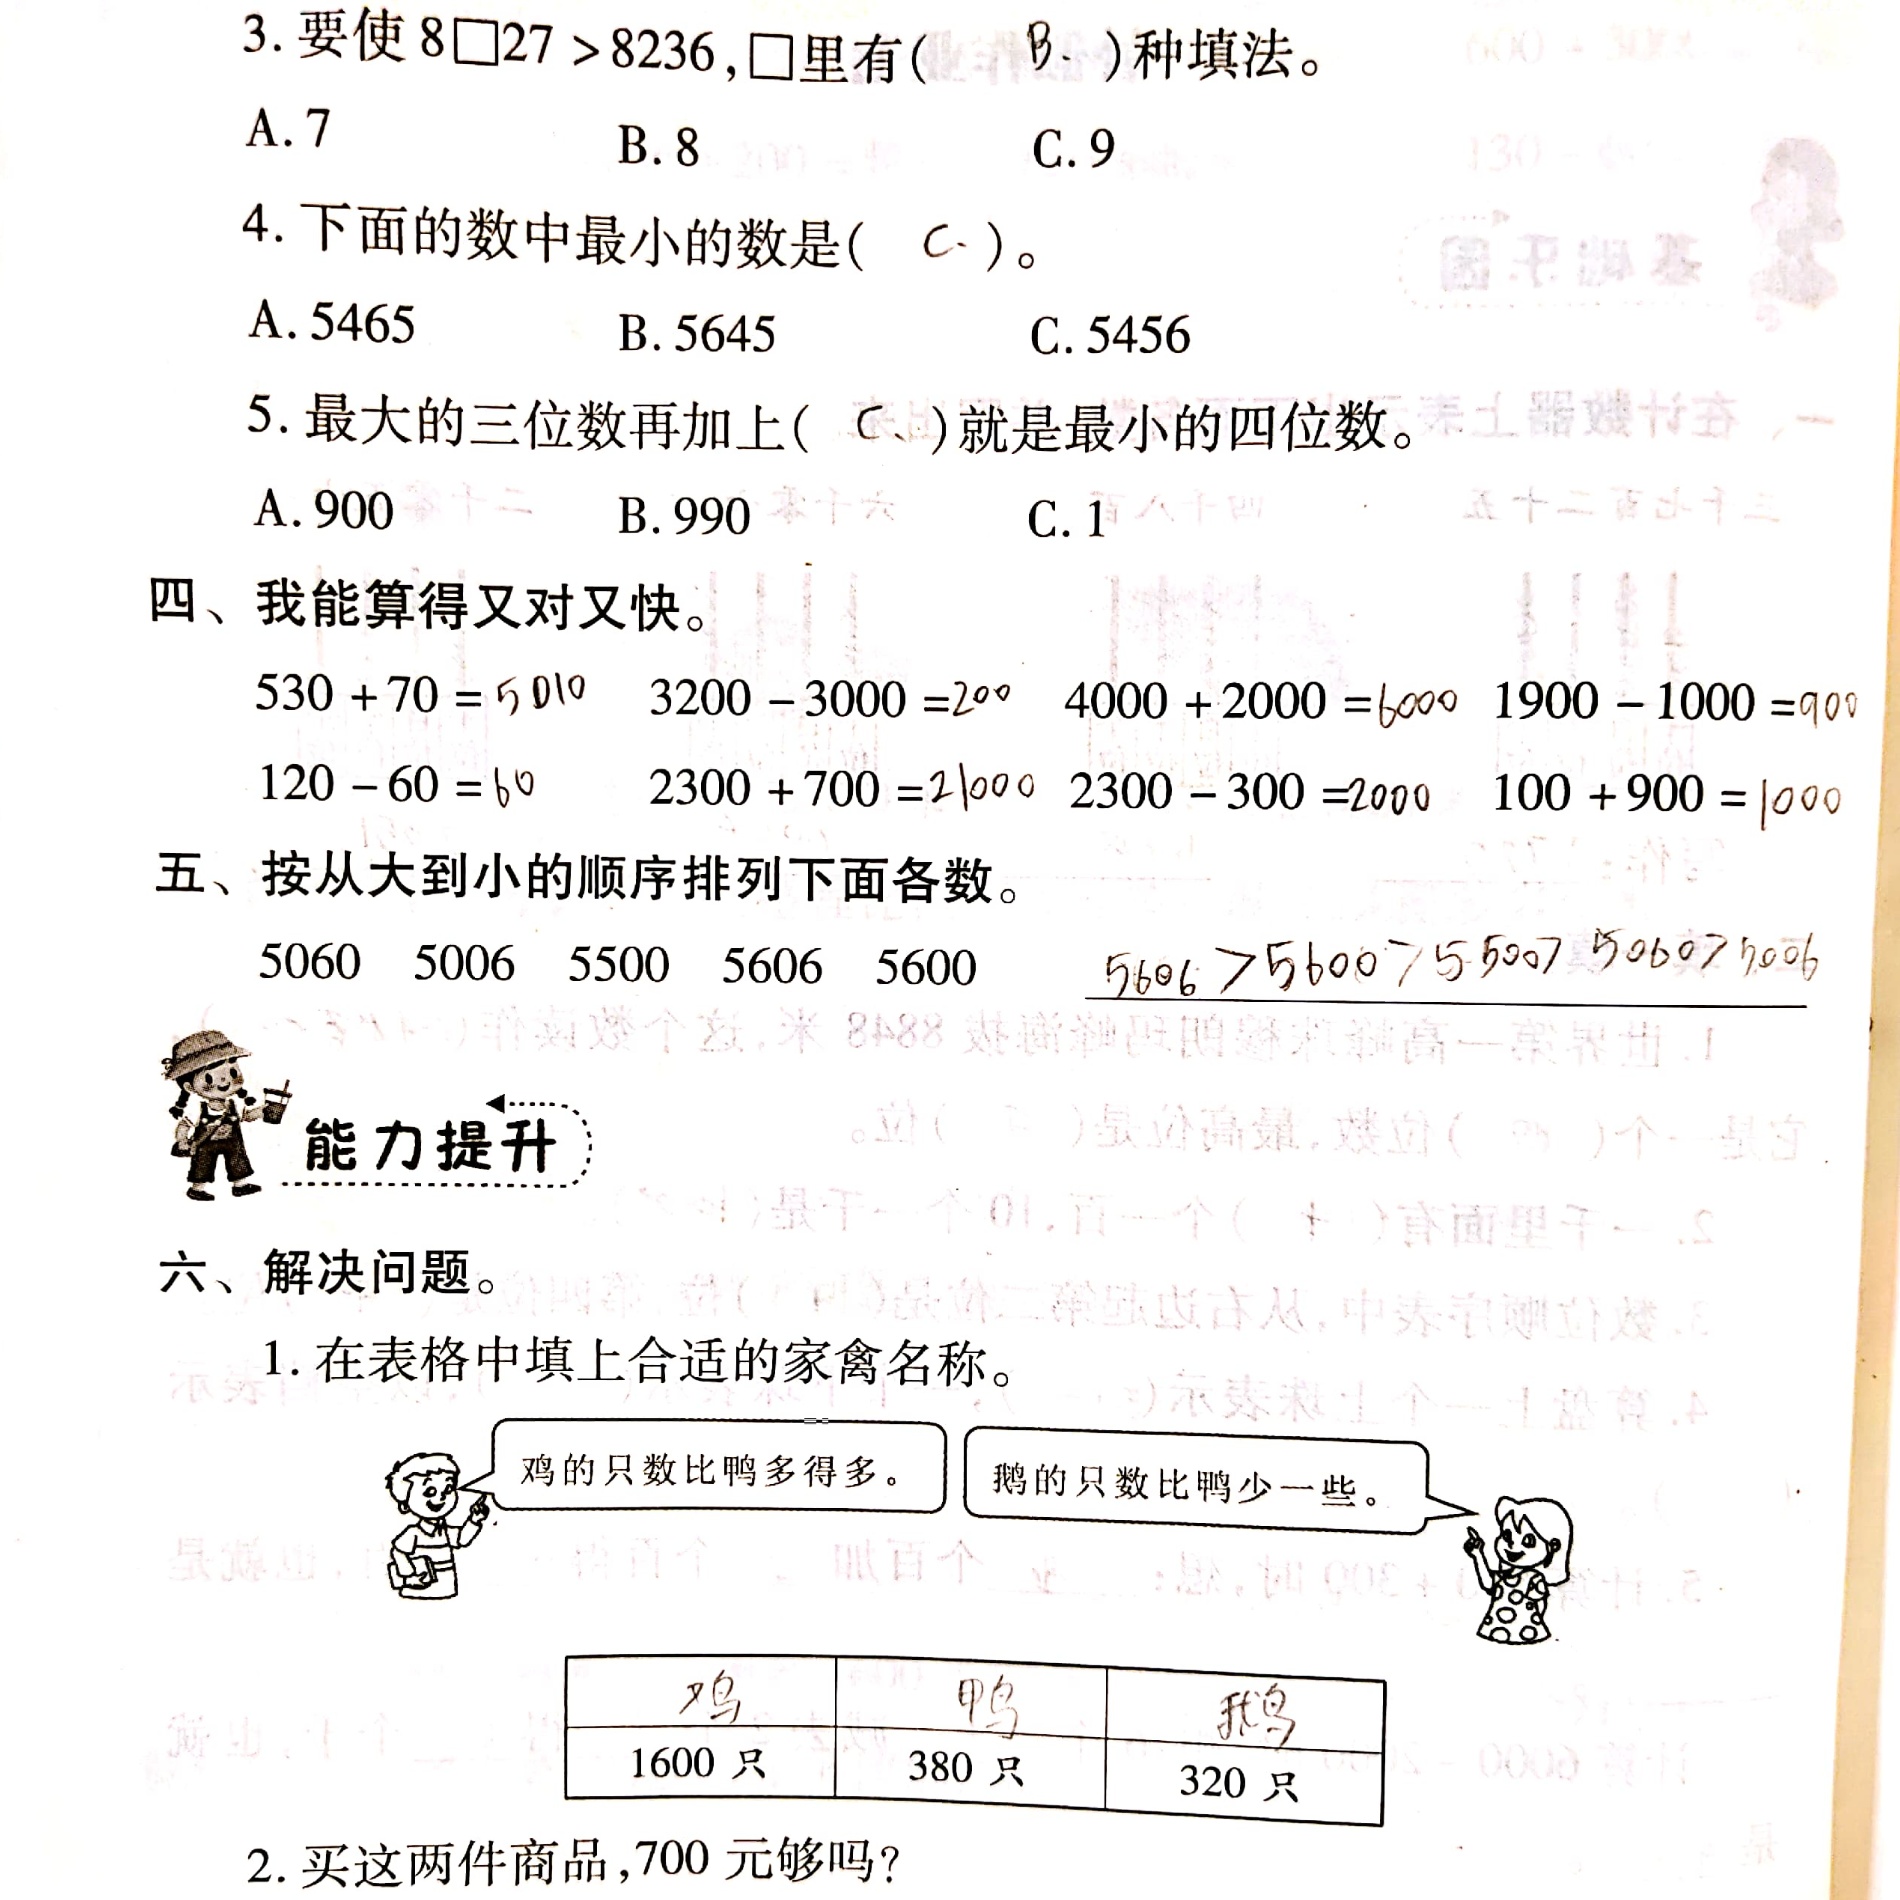 3.要使8□27>8236,□里有( B. )种填法。
A.7 B.8 C.9
4.下面的数中最小的数是( C. )。
A.5465 B.5645 C.5456
5.最大的三位数再加上( C、)就是最小的四位数。
A.900 B.990 C.1
四、我能算得又对又快。
530+70=5010 3200-3000=200 4000+2000=6000 1900-1000=900
120-60=60 2300+700=21000 2300-300=2000 100+900=1000
五、按从大到小的顺序排列下面各数。
5060 5006 5500 5606 5600 5606>5600>5500>5060>5006
能力提升
六、解决问题。
1.在表格中填上合适的家禽名称。
鸡的只数比鸭多得多。 鹅的只数比鸭少一些。
鸡 鸭 鹅
1600只 380只 320只
2.买这两件商品,700元够吗?